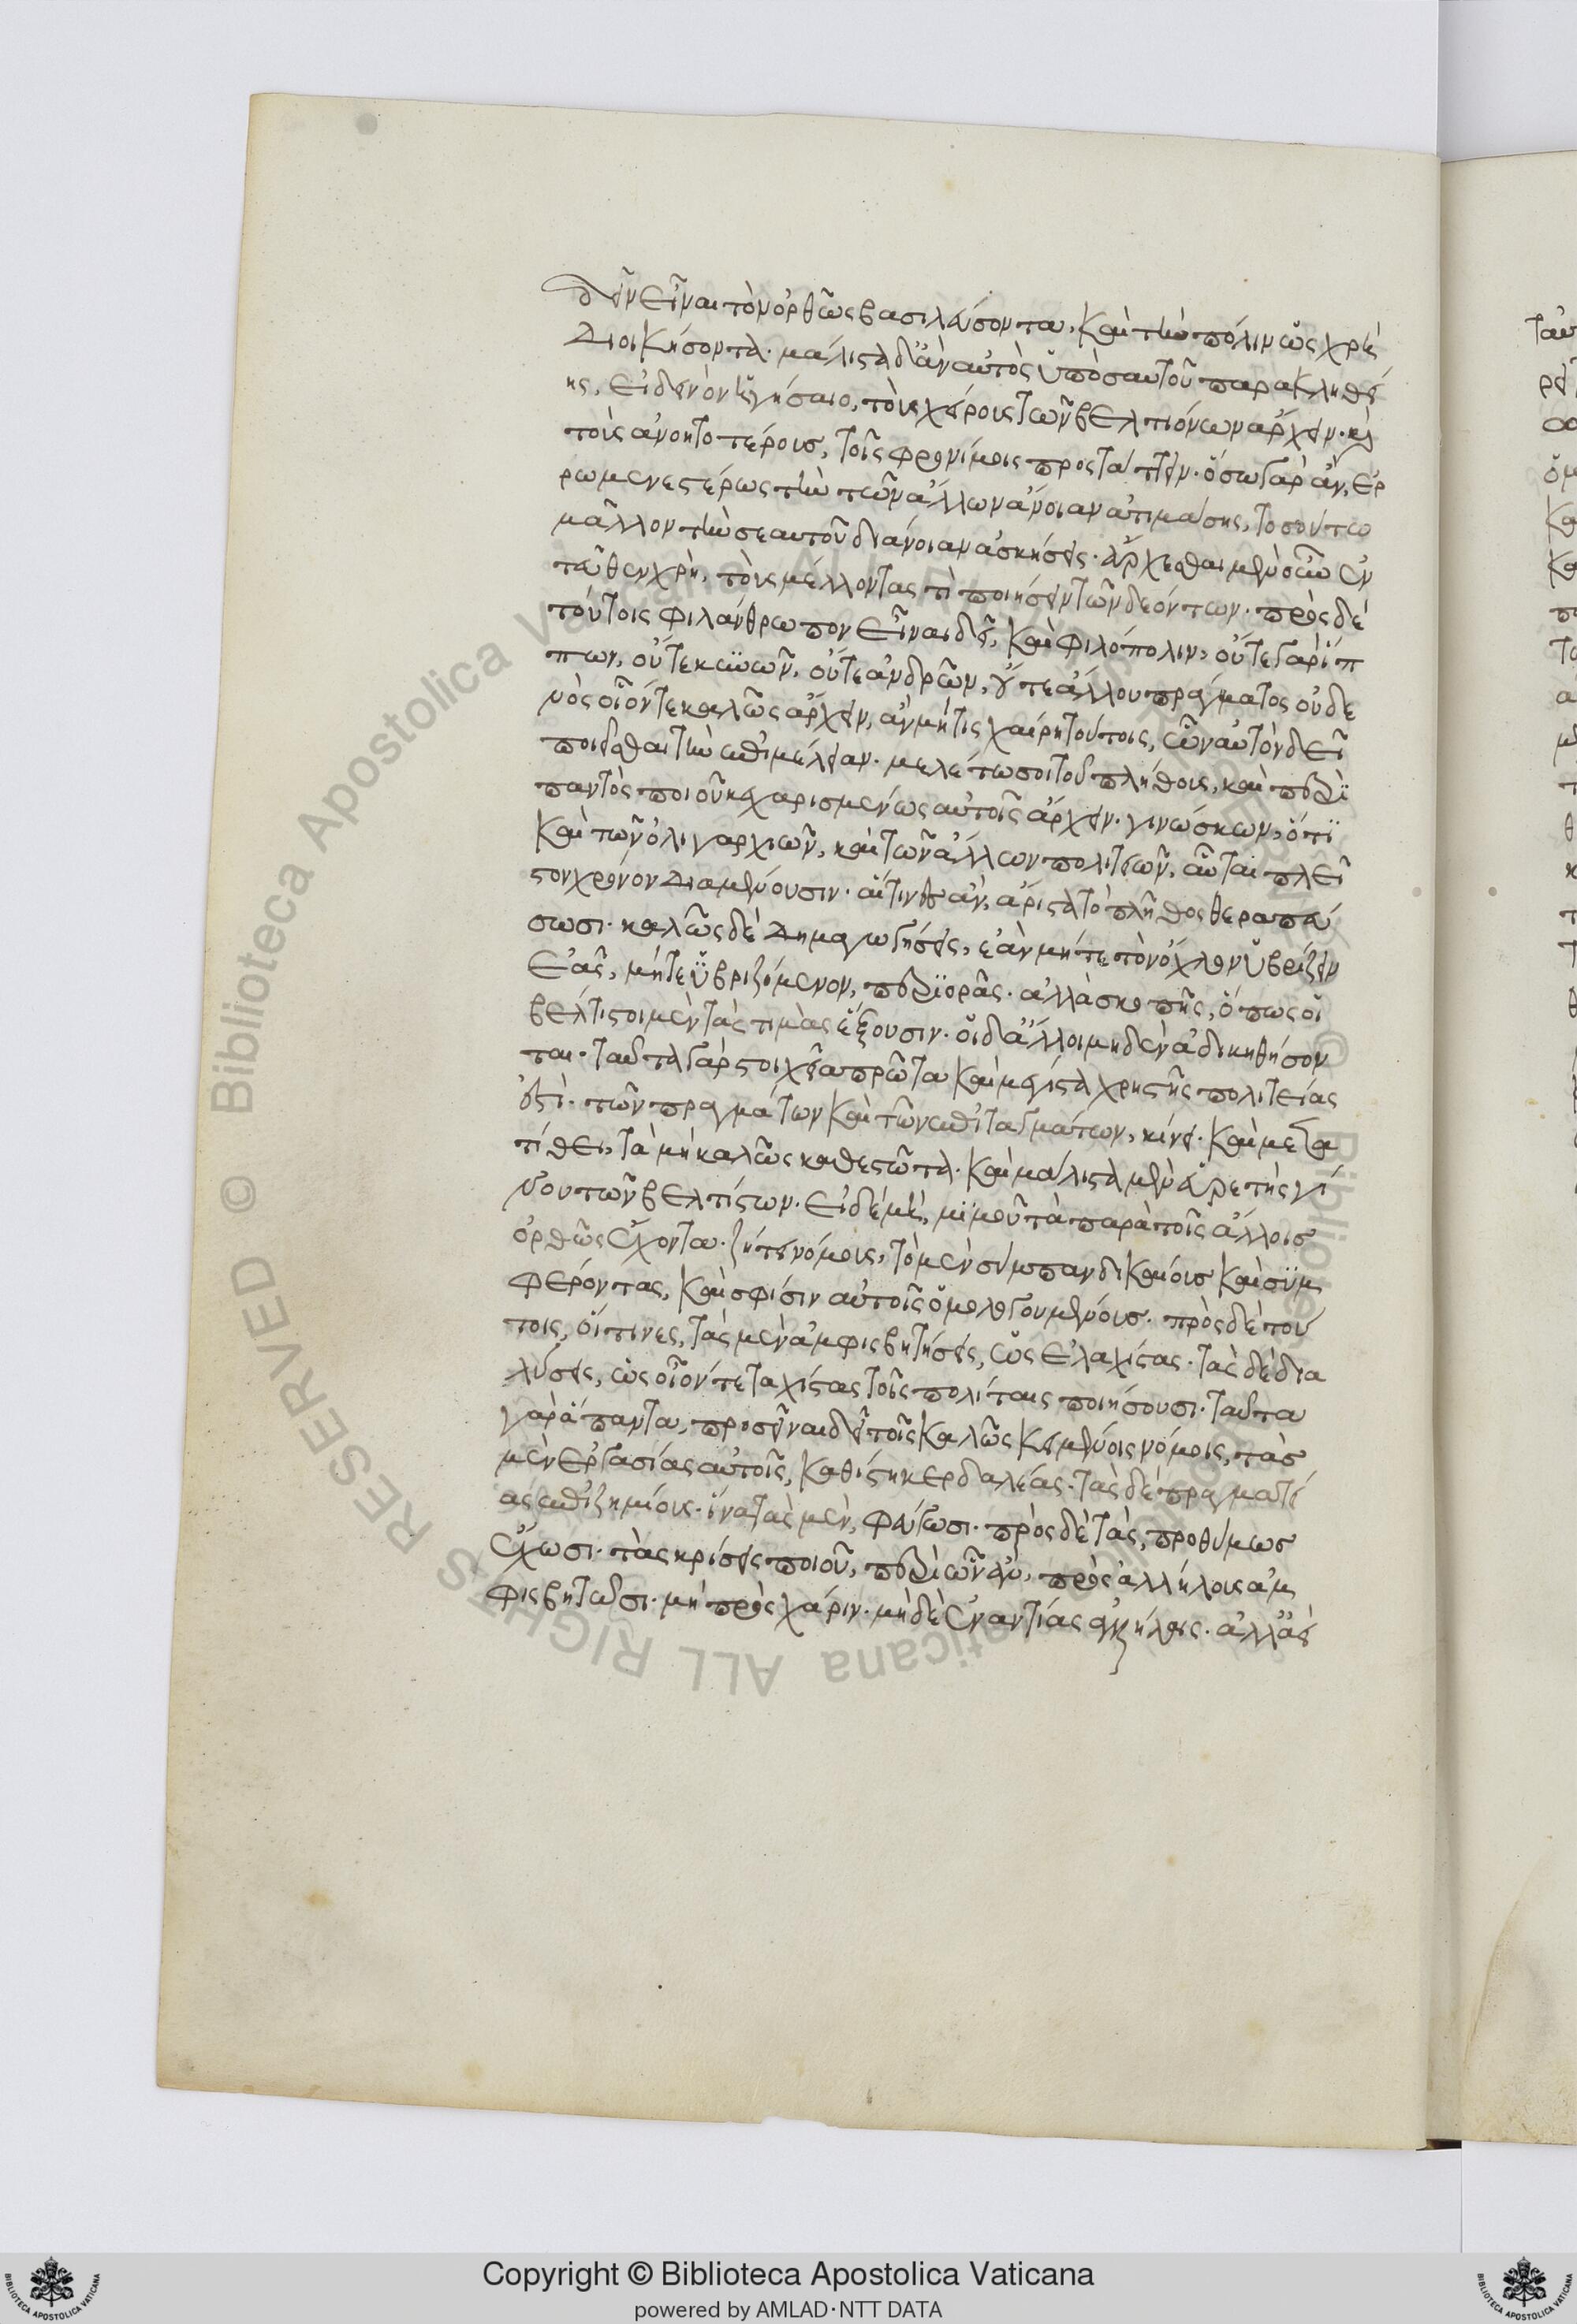 δεῖν εἶναι τὸν ὀρθῶς βασιλεύσοντα, καὶ τὴν πόλιν ὡς χρὴ
διοικήσοντα. μάλιστα δ' ἂν αὐτὸς ὑπὸ σαυτοῦ παρακληθεί
ης, εἰ δεινὸν ἡγήσαιο, τοὺς χείρους τῶν βελτιόνων ἄρχειν. καὶ
τοὺς ἀνοητοτέρους, τοῖς φρονίμοις προστάττειν. ὅσω γὰρ ἂν, ἐρ
ρωμενεστέρως τὴν τῶν ἄλλων ἄνοιαν ἀτιμάσης, τοσούτω
μᾶλλον τὴν σεαυτοῦ διάνοιαν ἀσκήσεις. ἄρχεσθαι μὲν οὖν ἐν
τεῦθεν χρὴ, τοὺς μέλλοντας τὶ ποιήσειν τῶν δεόντων. πρὸς δὲ
τούτοις φιλάνθρωπον εἶναι δεῖ, καὶ φιλόπολιν, οὔτε γὰρ ἵπ
πων, οὔτε κυνῶν, οὔτε ἀνδρῶν, οὔτε ἄλλου πράγματος οὐδε
νὸς οἷόν τε καλῶς ἄρχειν, ἂν μή τις χαίρη τούτοις, ὧν αὐτὸν δεῖ
ποιεῖσθαι τὴν ἐπιμέλειαν. μελέτω σοι τοῦ πλήθους, καὶ περὶ
παντὸς ποιοῦ κεχαρισμένως αὐτοῖς ἄρχειν. γινώσκων, ὅτι
καὶ τῶν ὀλιγαρχιῶν, καὶ τῶν ἄλλων πολιτειῶν, αὗται πλεῖ
στον χρόνον διαμένουσιν. αἵτινες ἂν, ἄριστα τὸ πλῆθος θεραπεύ
σωσι. καλῶς δὲ δημαγωγήσεις, ἐὰν μήτε τὸν ὄχλον ὑβρίζειν
ἐᾶς, μήτε ὑβριζόμενον, περιορᾶς. ἀλλὰ σκοπῆς, ὅπως οἱ
βέλτιστοι μὲν τὰς τιμὰς ἕξουσιν. οἱ δ' ἄλλοι μηδὲν ἀδικηθήσον
ται. ταῦτα γὰρ στοιχεῖα πρῶτα καὶ μέγιστα χρηστῆς πολιτείας
ἐστί. τῶν πραγμάτων καὶ τῶν ἐπιταγμάτων, κίνει. καὶ μετα
τίθει, τὰ μὴ καλῶς καθεστῶτα. καὶ μάλιστα μὲν εὑρετὴς γί
νου τῶν βελτίστων. εἰ δὲ μὴ, μιμοῦ τὰ παρὰ τοῖς ἄλλοις
ὀρθῶς ἔχοντα. ζήτει νόμους, τὸ μὲν σύμπαν δικαίους καὶ συμ
φέροντας, καὶ σφίσιν αὐτοῖς ὁμολογουμένους. πρὸς δὲ τού
τοις, οἵτινες, τὰς μὲν ἀμφισβητήσεις, ὡς ἐλαχίστας. τὰς δὲ δια
λύσεις, ὡς οἷόν τε ταχίστας τοῖς πολίταις ποιήσουσι. ταῦτα
γὰρ ἅπαντα, προσεῖναι δεῖ τοῖς καλῶς κειμένοις νόμοις, τὰς
μὲν ἐργασίας αὐτοῖς, καθίστη κερδαλέας. τὰς δὲ πραγματεί
ας ἐπιζημίους. ἵνα τὰς μὲν, φεύγωσι. πρὸς δὲ τὰς, προθύμως
ἔχωσι. τὰς κρίσεις ποιοῦ, περὶ ὧν ἂν, πρὸς ἀλλήλους ἀμ
φισβητῶσι. μὴ πρὸς χάριν. μηδὲ ἐναντίας ἀλλήλαις. ἀλλ' ἀεὶ